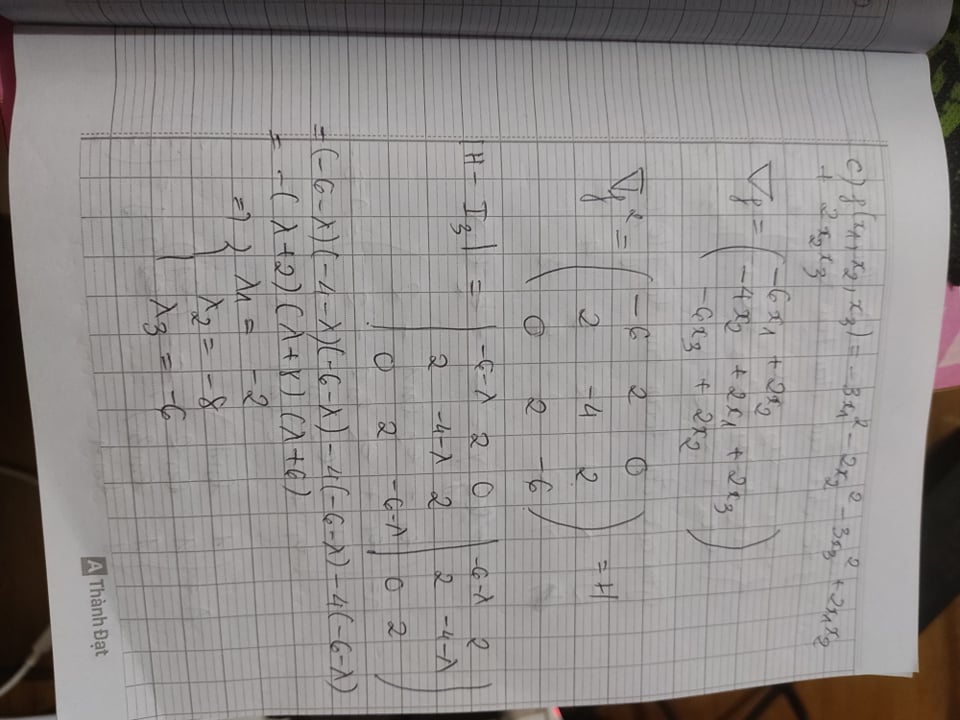 c) f(x₁, x₂, x₃) = -3x₁² - 2x₂² - 3x₃² + 2x₁x₂
+ 2x₂x₃
∇f = ( -6x₁ + 2x₂
-4x₂ + 2x₁ + 2x₃
-6x₃ + 2x₂ )
∇f² = ( -6 2 0
2 -4 2
0 2 -6 ) = H
|H - I₃| = | -6-λ 2 0 | -6-λ 2
2 -4-λ 2 | 2 -4-λ
0 2 -6-λ | 0 2 )
= (-6-λ)(-4-λ)(-6-λ) - 4(-6-λ) - 4(-6-λ)
= -(λ+2)(λ+8)(λ+6)
=> { λ₁ = -2
λ₂ = -8
λ₃ = -6
A Thành Đạt